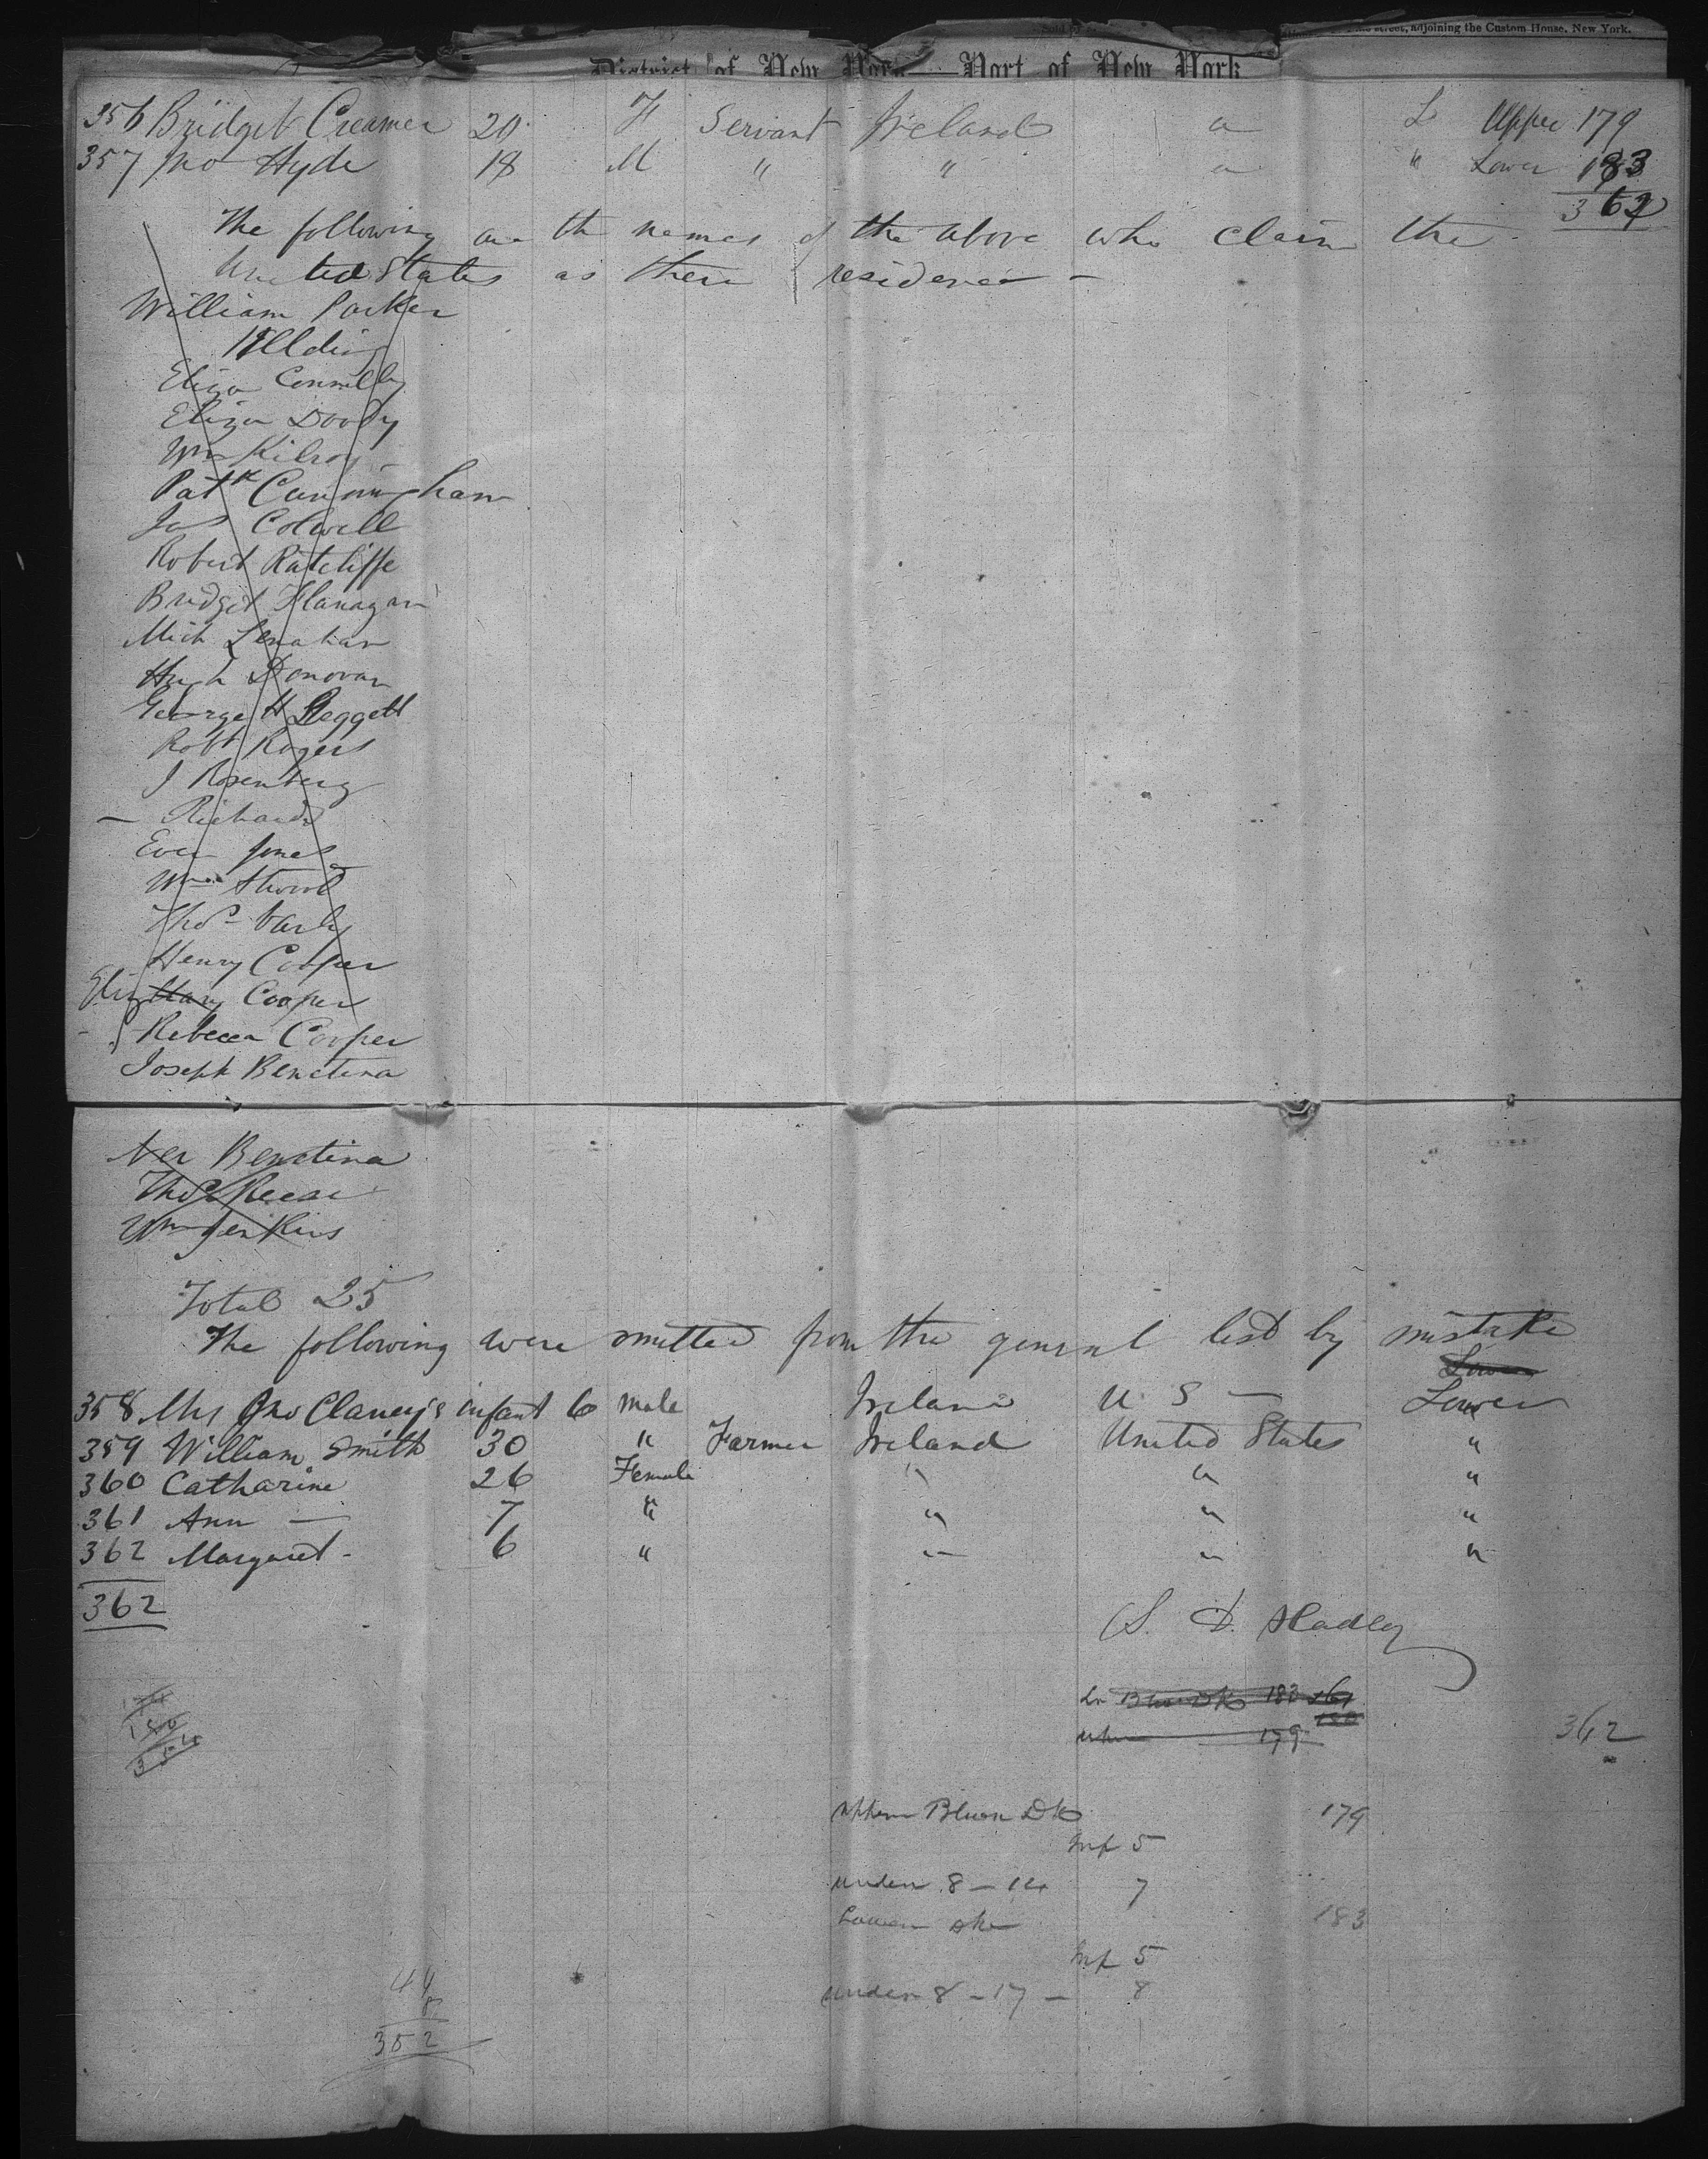 adjoining the Custom House, New York.
District of New York — Port of New York
356 Bridget Creamer 20 F Servant Ireland " L Upper 179
357 Jno Hyde 18 M " " " " Lower 183
362
The following are the names of the above who claim the
United States as their residence —
William Parker
Eliza Connelly
Eliza Doody
Wm Kilroy
Patk Cunningham
Jas Colwell
Robert Ratcliffe
Bridget Flanagan
Mich Lenahan
Hugh Donovan
George H Leggett
Robt Rogers
J Rosenberg
— Richards
Evan Jones
Wm
Thos Varly
Henry Cooper
Eliz Mary Cooper
Rebecca Cooper
Joseph Benctina
Benctina
Thos Reese
Wm Jenkins
Total 25
The following were omitted from the general list by mistake
Lower
358 Mrs Jno Clancy's infant 6 male Ireland U S — Lower
359 William Smith 30 " Farmer Ireland United States "
360 Catharine 26 Female " " "
361 Ann — 7 " " " "
362 Margaret - 6 " " " "
362
S. D. Hadley
183
179
362
179
Inf 5
under 8 - 14 7
Lower 183
Inf 5
under 8 - 17 - 8
44
8
352